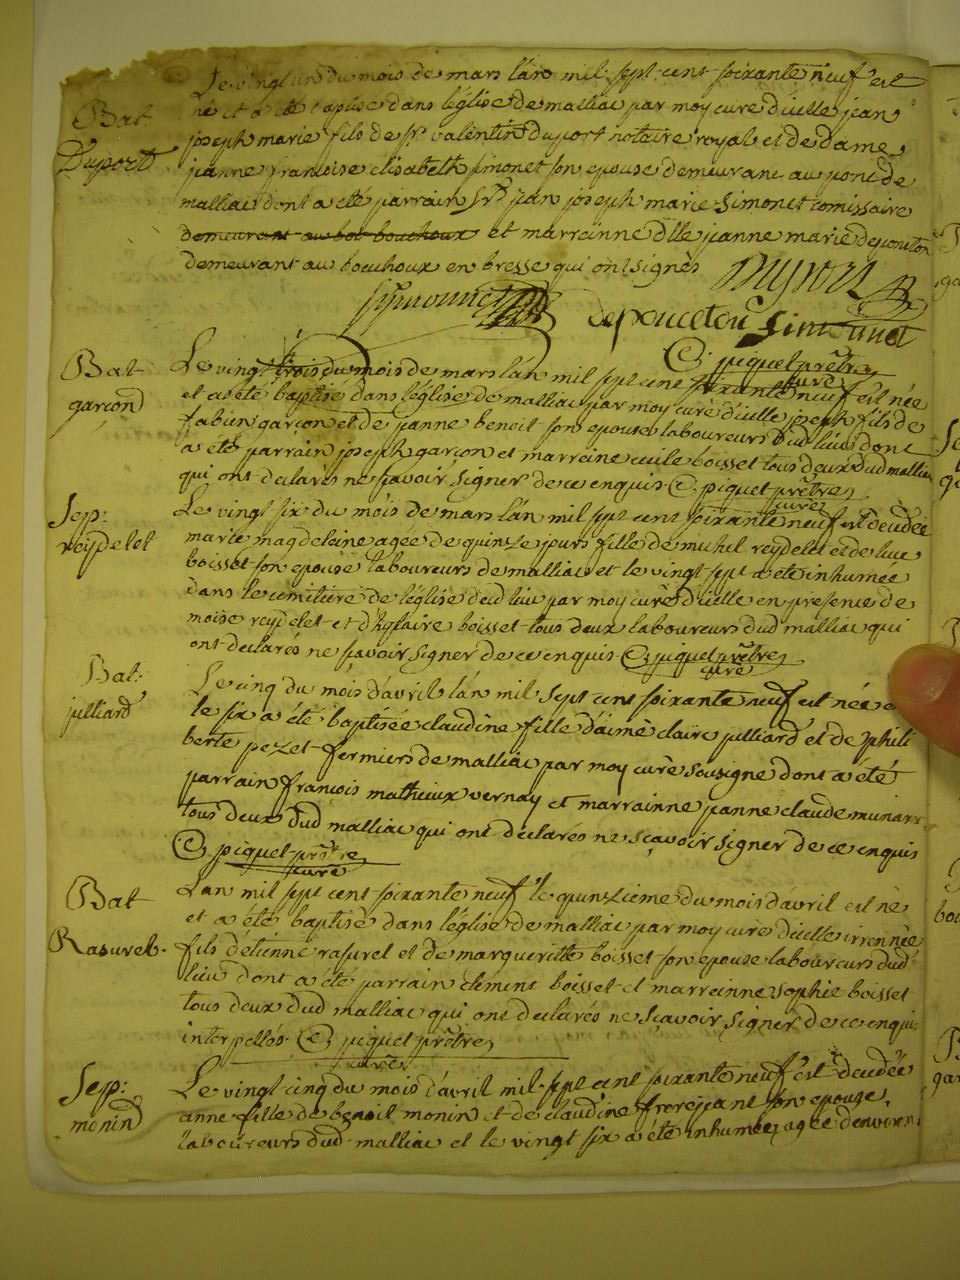 Le vingt un du mois de mars lan mil sept cent soixante neuf est
Bat né et a eté baptisé dans léglise de malliac par moy curé d'icelle jean
Duport joseph marie fils de sr valentin duport notaire royal et de dame
jeanne françoise elisabeth simonet son epouse demeurant au pont de
malliac dont a eté parrain Sr jean joseph marie Simonet comissaire
demeurant au bot bouchoux et marrainne dlle jeanne marie deponceton
demeurant au bouchoux en bresse qui ont signés Duport
Symonnet deponceton Simonnet
C, piquet prêtre
curé
Bat Le vingt trois du mois de mars lan mil sept cent soixante neuf est née
garcon et a eté baptisé dans léglise de malliac par moy curé d'icelle joseph fils de
fabien garcon et de jeanne benoit son epouse laboureurs dud lieu dont
a eté parrain joseph garcon et marreine cecile boisset tous deux dud malliac
qui ont declarés ne sçavoir signer de ce enquis C, piquet prêtre
curé
Sep: Le vingt six du mois de mars lan mil sept cent soixante neuf est decedée
reydelet marie magdelaine agée de quinze jours fille de michel reydelet et de luce
boisset son epouse laboureurs de malliac et le vingt sept a eté inhumée
dans le cimitiere de léglise dud lieu par moy curé d'icelle en presence de
moise reydelet et d'hylaire boisset tous deux laboureurs dud malliac qui
ont declarés ne sçavoir signer de ce enquis C, piquet prêtre
curé
Bat: Le cinq du mois d'avril lan mil sept cent soixante neuf est née e
julliard le six a été baptisée claudine fille d'aimé claire julliard et de phili
berte pezet fermiers de malliac par moy curé sousigné dont a été
parrain françois matheiux vernay et marrainne jeanne claude munar
tous deux dud malliac qui ont declarés ne sçavoir signer de ce enquis
C, piquet prêtre
curé
Bat Lan mil sept cent soixante neuf le quinzieme du mois d'avril est né
et a été baptisé dans léglise de malliac par moy curé d'icelle irrennée
Rasurel. fils d'etienne rasurel et de margueritte boisset son epouse laboureurs dud
lieu dont a eté parrain clement boisset et marreinne sophie boisset
tous deux dud malliac qui ont declarés ne sçavoir signer de ce enqui
interpellés. C, piquet prêtre
curé
Sep: Le vingt cinq du mois d'avril mil sept cent soixante neuf est decedée
monin anne fille de benoit monin et de claudine frerejeant son epouse,
laboureurs dud malliac et le vingt six a été inhumée agée d'environ